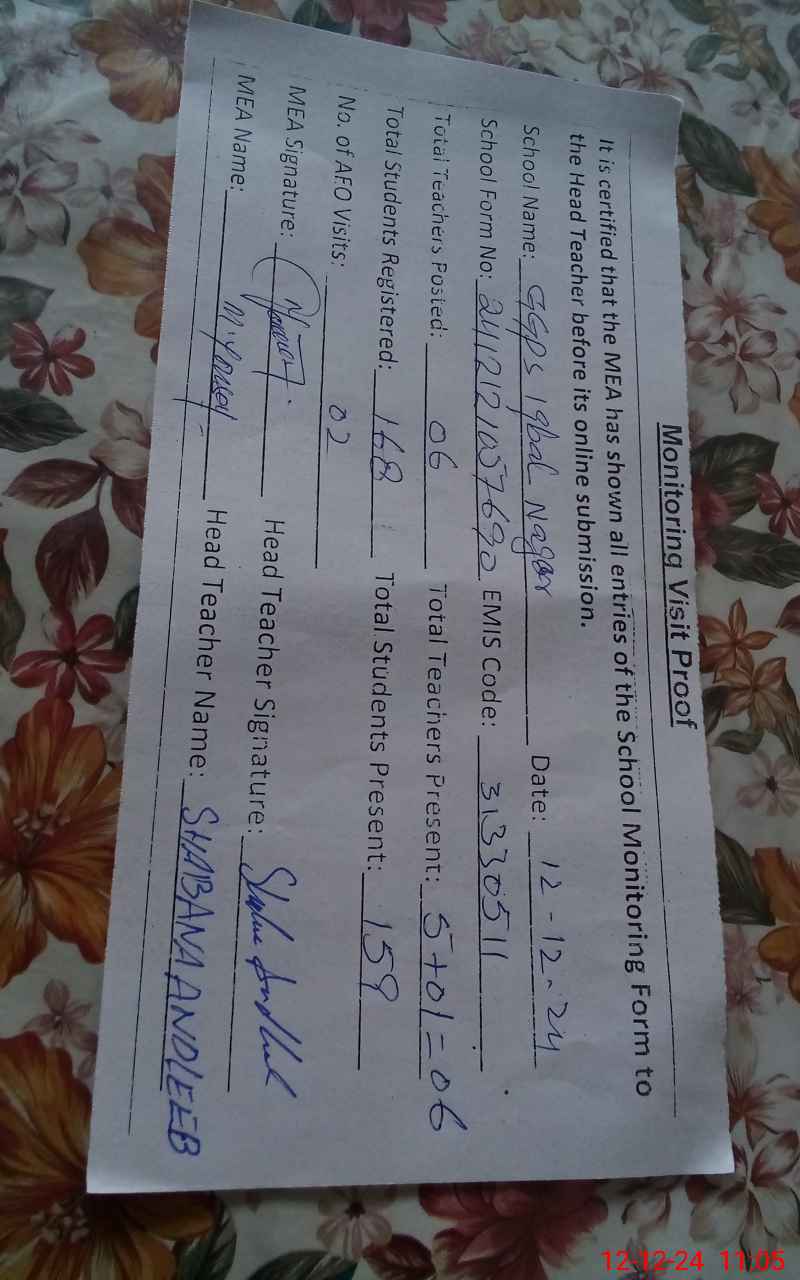 Monitoring Visit Proof
It is certified that the MEA has shown all entries of the School Monitoring Form to
the Head Teacher before its online submission.
School Name: GGPS Iqbal Nagar Date: 12-12-24
School Form No: 2412121057690 EMIS Code: 31330511
Total Teachers Posted: 06 Total Teachers Present: 5+01=06
Total Students Registered: 168 Total Students Present: 159
No. of AEO Visits: 02
MEA Signature: Head Teacher Signature:
MEA Name: Head Teacher Name: SHABANA ANDLEEB
12-12-24 11:05